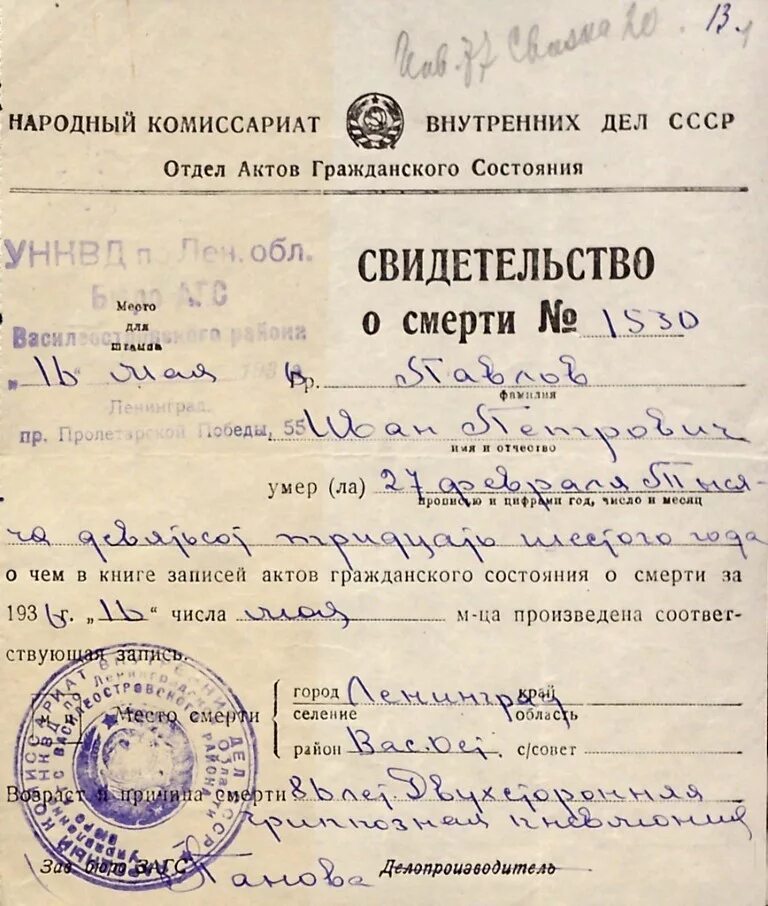 Инв. 37 Связка 20. 13
НАРОДНЫЙ КОМИССАРИАТ ВНУТРЕННИХ ДЕЛ СССР
Отдел Актов Гражданского Состояния
УНКВД по Лен. обл.
Бюро АГС
Василеостровского района
Место
для
штампа
„16" мая 1936 г.
Ленинград.
пр. Пролетарской Победы, 55
СВИДЕТЕЛЬСТВО
о смерти № 1530
Гр. Павлов
фамилия
Иван Петрович
имя и отчество
умер (ла) 27 февраля Тыся-
прописью и цифрами год, число и месяц
ча девятьсот тридцать шестого года
о чем в книге записей актов гражданского состояния о смерти за
1936 г. „16" числа мая м-ца произведена соответ-
ствующая запись.
Место смерти
город Ленинград край
селение область
район Вас. Ост. с/совет
Возраст и причина смерти 86 лет. Двухсторонняя
гриппозная пневмония
Зав бюро ЗАГС Панова Делопроизводитель